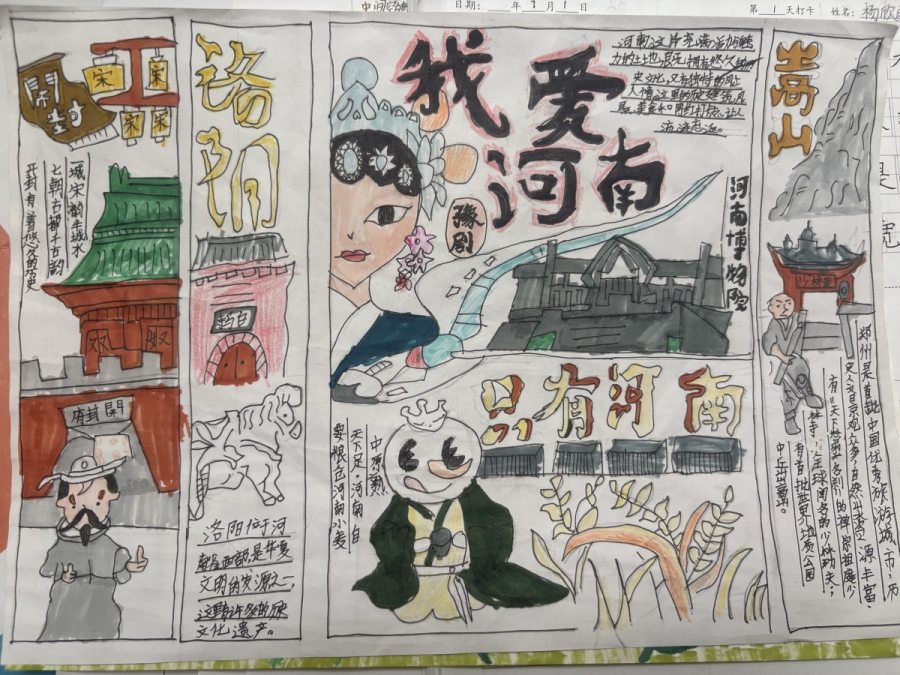 日期: 年7月1日
第 1 天打卡 姓名:杨欣
開封
宋
宋
宋
宋
一城宋韵半城水
七朝古都千古韵
开封有着悠久的历史
府封開
洛阳
洛阳位于河
南省西部,是华夏
文明的发源之一,
这里有许多的历史
文化遗产。
我爱
河南
河南这片充满活力和魅
力的土地,既拥有悠久的历
史文化,又有独特的风土
人情,这里的历史建筑,风
景,美食和网红打卡,让人
流连忘返。
豫剧
河南博物院
只有河南
中原熟
天下足,河南自
河南小麦
嵩山
少林寺
郑州是首批中国优秀旅游城市,历
史人文自景观众多,自然资源丰富,
有"天下第一名刹"的禅宗祖庭少
林寺;全球闻名的少林功夫;
有首批世界地质公园
中岳嵩山。